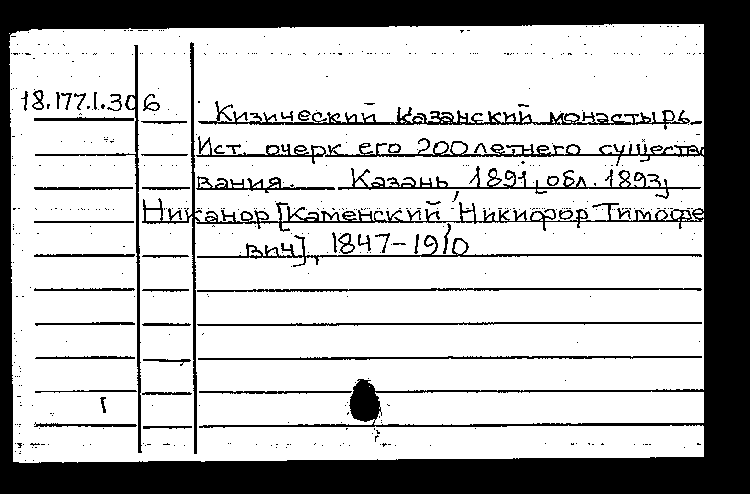 18.177.1.306
Кизический Казанский монастырь
Ист. очерк его 200летнего существо
вания. Казань, 1891 [обл. 1893]
Никанор [Каменский, Никифор Тимофе
вич], 1847-1910